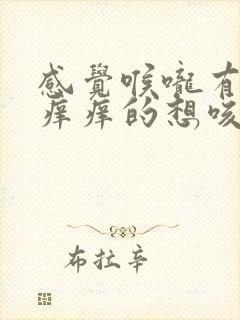 感覺喉嚨有
痒痒的想咳
布拉辛